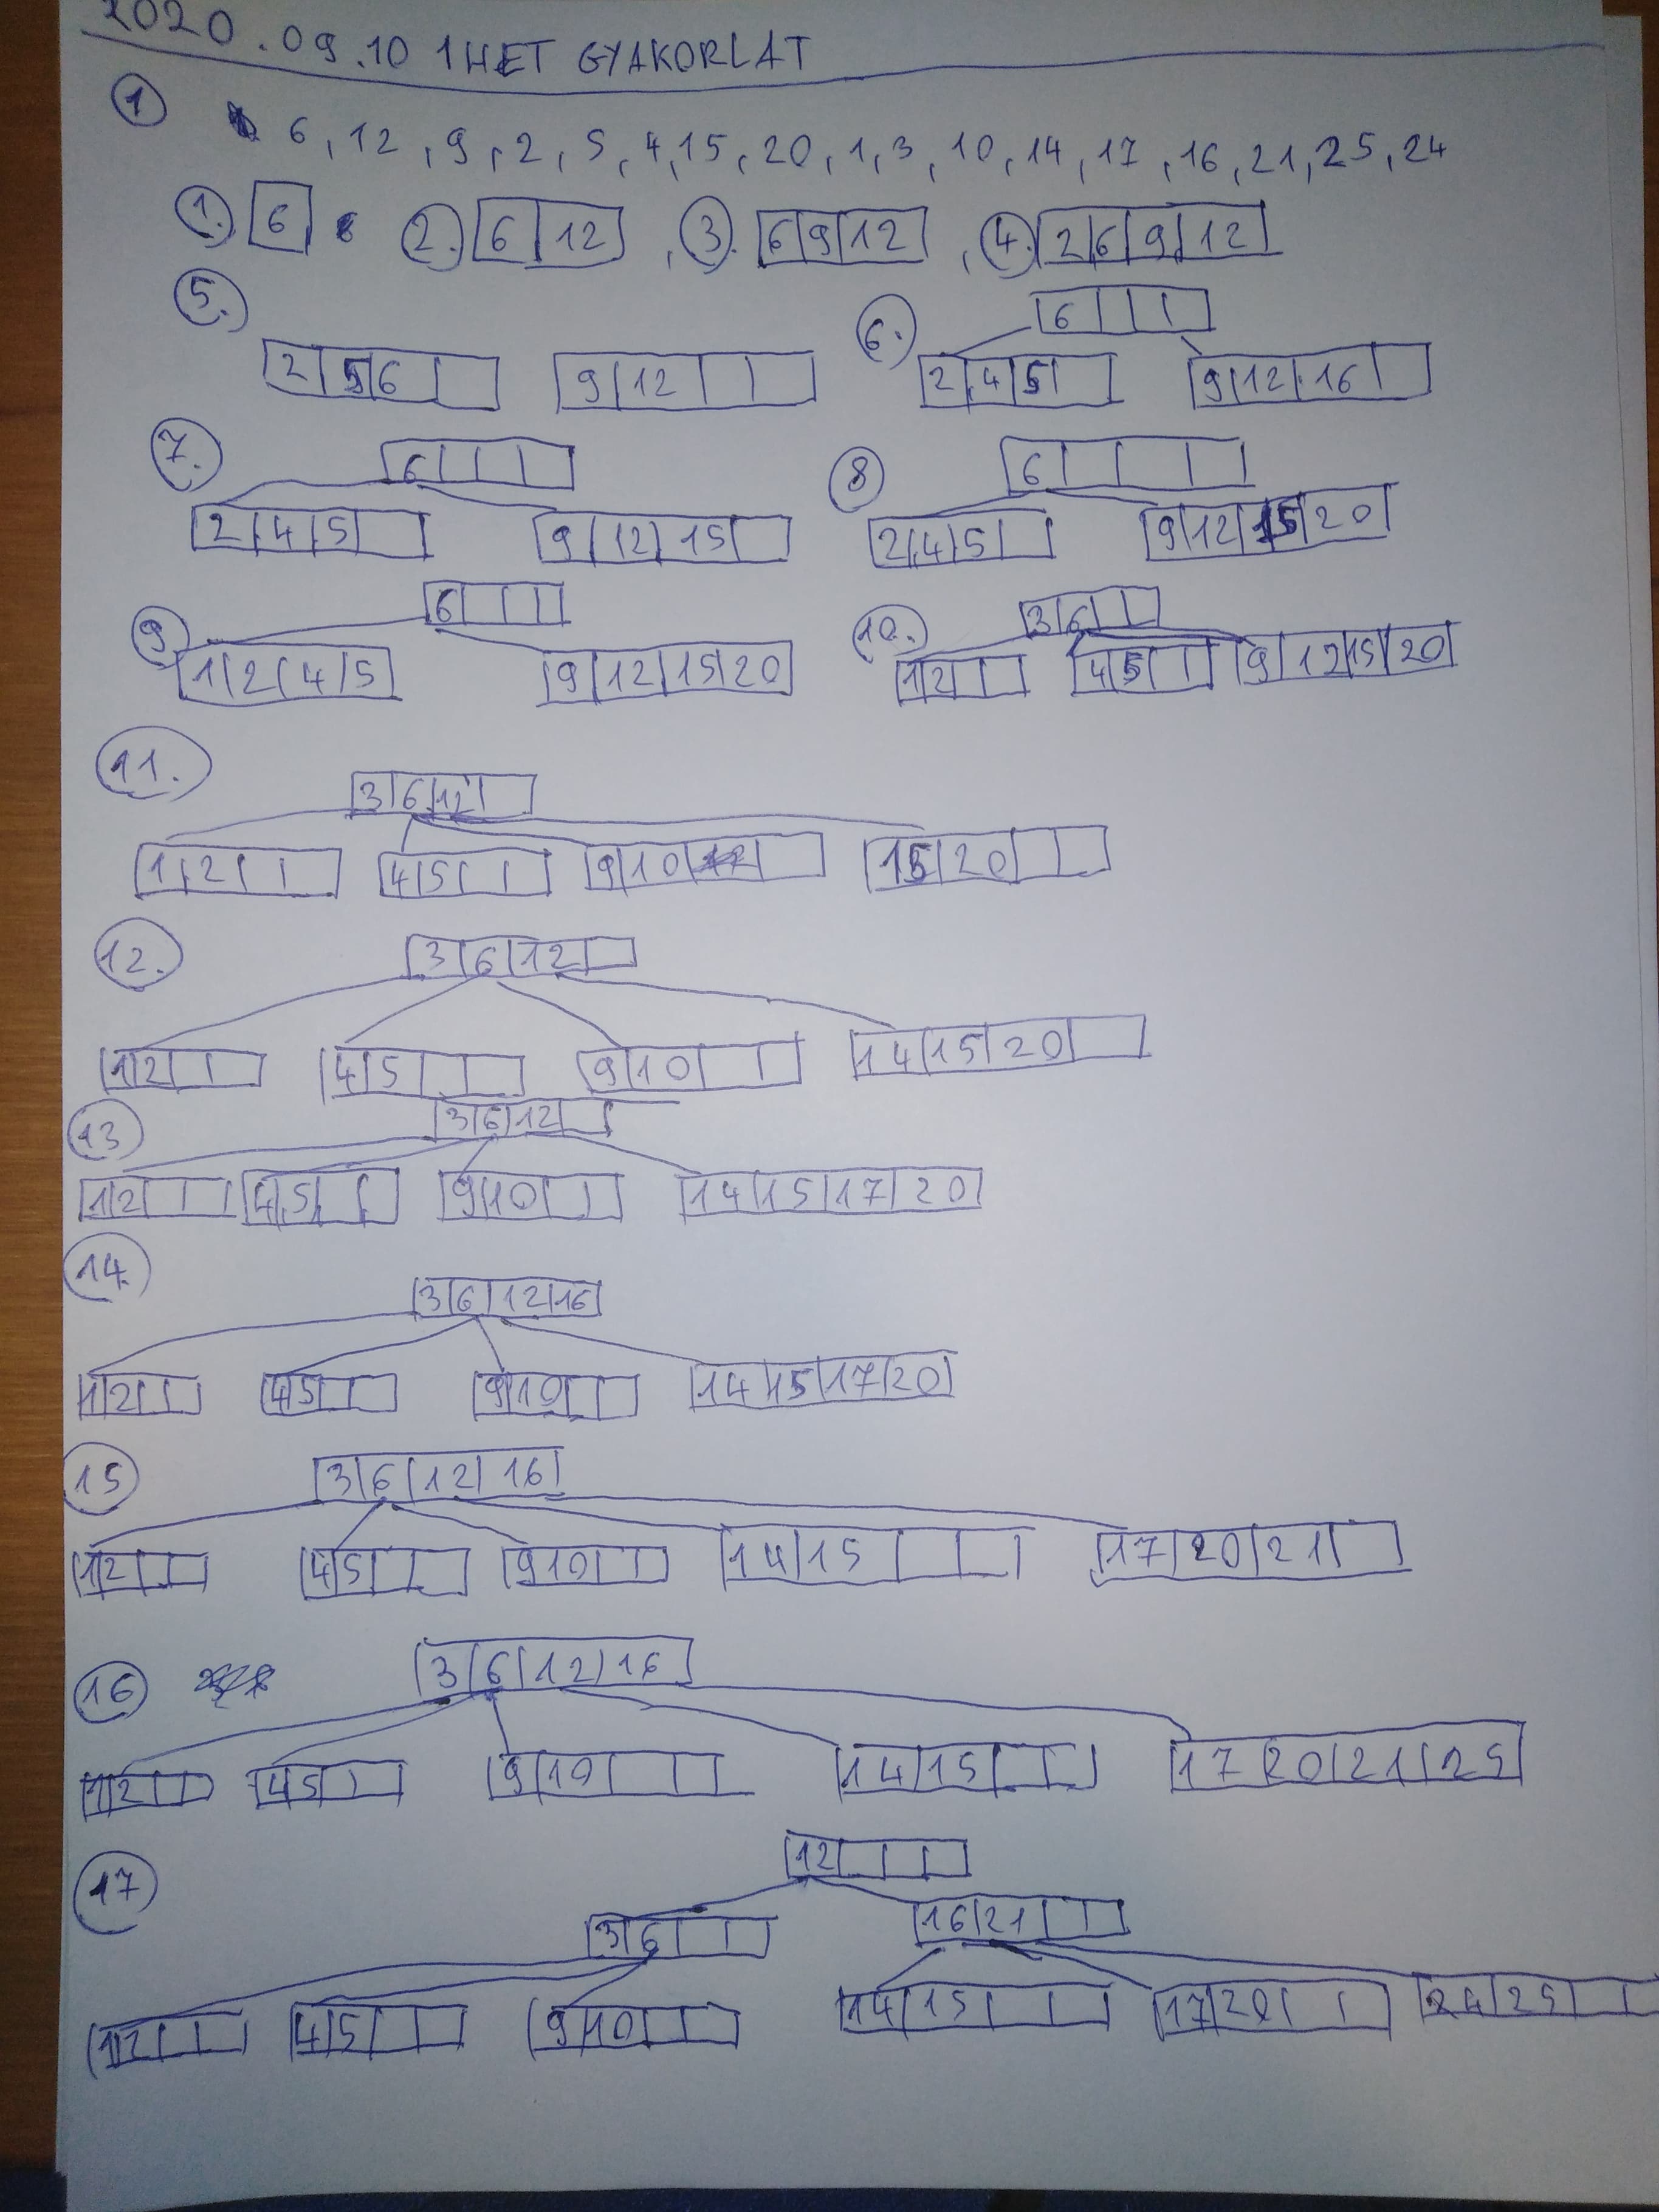 2020.09.10 1HET GYAKORLAT
1
6, 12, 9, 2, 5, 4, 15, 20, 1, 3, 10, 14, 17, 16, 21, 25, 24
1. 6 2. 6 12, 3. 6 9 12, 4. 2 6 9 12
5. 6. 6
2 5 6 9 12 2 4 5 9 12 16
7. 6 8 6
2 4 5 9 12 15 2 4 5 9 12 15 20
9 6 10. 3 6
1 2 4 5 9 12 15 20 1 2 4 5 9 12 15 20
11. 3 6 12
1 2 4 5 9 10 15 20
12. 3 6 12
1 2 4 5 9 10 14 15 20
13 3 6 12
1 2 4 5 9 10 14 15 17 20
14. 3 6 12 16
1 2 4 5 9 10 14 15 17 20
15 3 6 12 16
1 2 4 5 9 10 14 15 17 20 21
16 3 6 12 16
1 2 4 5 9 10 14 15 17 20 21 25
17 12
3 6 16 21
1 2 4 5 9 10 14 15 17 20 24 25